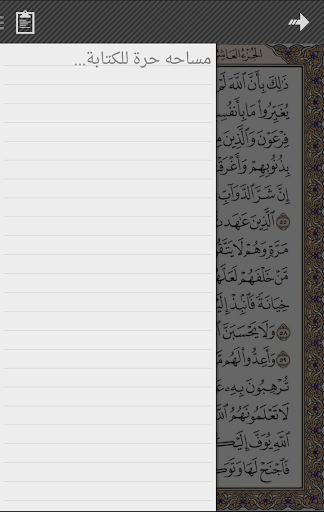 مساحه حرة للكتابة...
الجزء العاشر
ذَٰلِكَ بِأَنَّ ٱللَّهَ لَمْ
يُغَيِّرُوا۟ مَا بِأَنفُسِ
فِرْعَوْنَ وَٱلَّذِينَ مِ
بِذُنُوبِهِمْ وَأَغْرَقْ
إِنَّ شَرَّ ٱلدَّوَآبِّ
٥٥ ٱلَّذِينَ عَٰهَدتَّ
مَرَّةٍ وَهُمْ لَا يَتَّقُ
مَّنْ خَلْفَهُمْ لَعَلَّهُ
خِيَانَةً فَٱنۢبِذْ إِلَ
٥٨ وَلَا يَحْسَبَنَّ
٥٩ وَأَعِدُّوا۟ لَهُم مَّ
تُرْهِبُونَ بِهِۦ عَ
لَا تَعْلَمُونَهُمُ ٱللَّ
ٱللَّهِ يُوَفَّ إِلَيْكُ
فَٱجْنَحْ لَهَا وَتَوَكَّ